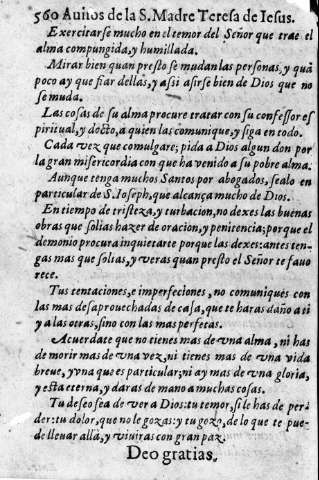 560 Auiſos de la S. Madre Tereſa de Ieſus.
Exercitarſe mucho en el temor del Señor que trae el
alma compungida, y humillada.
Mirar bien quan preſto ſe mudan las perſonas, y quã
poco ay que fiar dellas, y aſsi aſirſe bien de Dios que no
ſe muda.
Las coſas de ſu alma procure tratar con ſu confeſſor eſ
piritual, y docto, a quien las comunique, y ſiga en todo.
Cada vez que comulgare; pida a Dios algun don por
la gran miſericordia con que ha venido a ſu pobre alma.
Aunque tenga muchos Santos por abogados, ſealo en
particular de S. Ioſeph, que alcança mucho de Dios.
En tiempo de triſteza, y turbacion, no dexes las buenas
obras que ſolias hazer de oracion, y penitencia; porque el
demonio procura inquietarte porque las dexes: antes ten-
gas mas que ſolias, y veras quan preſto el Señor te fauo
rece.
Tus tentaciones, e imperfeciones, no comuniques con
las mas deſaprouechadas de caſa, que te haras daño a ti
y a las otras, ſino con las mas perfetas.
Acuerdate que no tienes mas de vna alma, ni has
de morir mas de vna vez, ni tienes mas de vna vida
breue, y vna que es particular; ni ay mas de vna gloria,
y eſta eterna, y daras de mano a muchas coſas.
Tu deſeo ſea de ver a Dios: tu temor, ſi le has de per-
der: tu dolor, que no le gozas: y tu gozo, de lo que te pue-
de lleuar allà, y viuiras con gran paz.
Deo gratias.